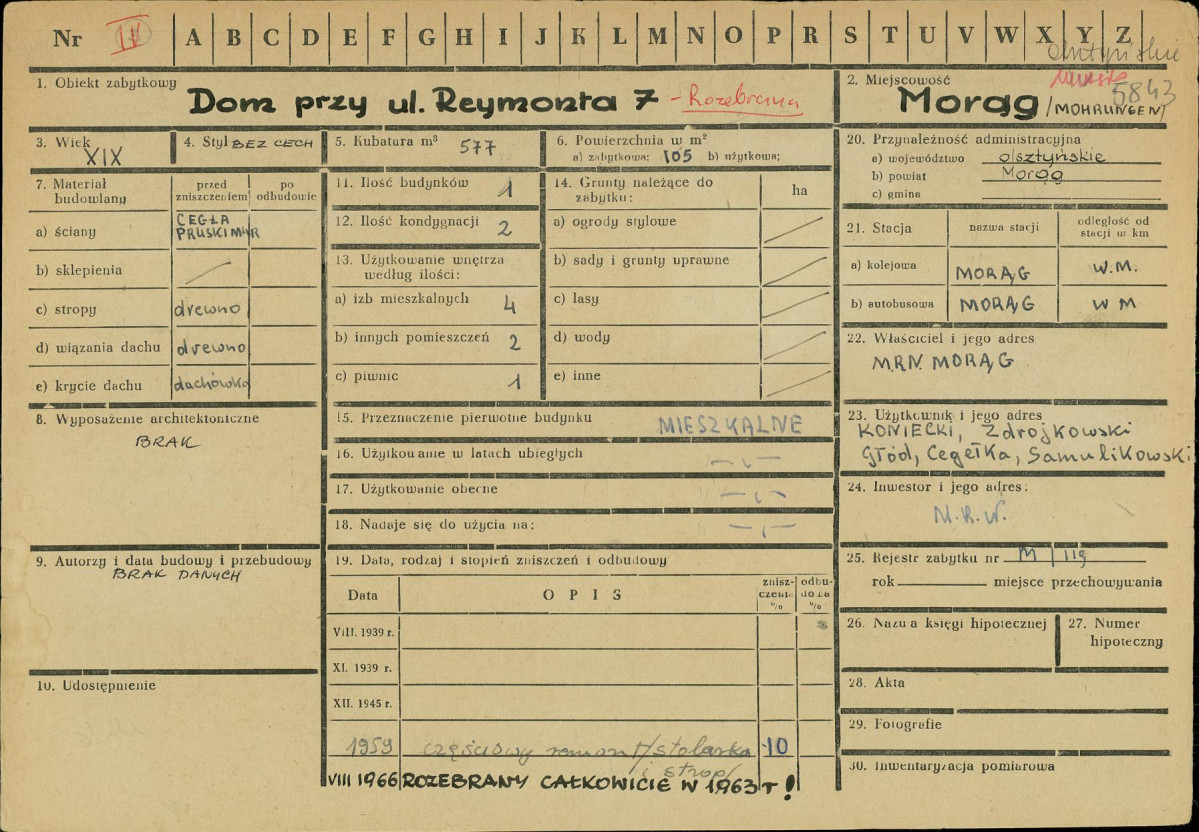 Nr IV A B C D E F G H I J K L M N O P R S T U V W X Y Z
olsztyńskie
miasto
5843
1. Obiekt zabytkowy
Dom przy ul. Reymonta 7 - Rozebrana
2. Miejscowość
Morąg /MOHRUNGEN/
3. Wiek
XIX
4. Styl BEZ CECH
5. Kubatura m³ 577
6. Powierzchnia w m²
a) zabytkowa: 105 b) użytkowa;
7. Materiał budowlany
przed zniszczeniem
po odbudowie
a) ściany CEGŁA PRUSKI MUR
b) sklepienia
c) stropy drewno
d) wiązania dachu drewno
e) krycie dachu dachówka
8. Wyposażenie architektoniczne
BRAK
9. Autorzy i data budowy i przebudowy
BRAK DANYCH
10. Udostępnienie
11. Ilość budynków 1
12. Ilość kondygnacji 2
13. Użytkowanie wnętrza według ilości:
a) izb mieszkalnych 4
b) innych pomieszczeń 2
c) piwnic 1
14. Grunty należące do zabytku:
ha
a) ogrody stylowe
b) sady i grunty uprawne
c) lasy
d) wody
e) inne
15. Przeznaczenie pierwotne budynku MIESZKALNE
16. Użytkowanie w latach ubiegłych - , -
17. Użytkowanie obecne - , -
18. Nadaje się do użycia na; - , -
19. Data, rodzaj i stopień zniszczeń i odbudowy
Data
OPIS
zniszczenia %
odbudowa %
VIII. 1939 r.
XI. 1939 r.
XII. 1945 r.
1959 częściowy remont /stolarka 10
i strop/
VIII 1966 ROZEBRANY CAŁKOWICIE W 1963 r !
20. Przynależność administracyjna
a) województwo olsztyńskie
b) powiat Morąg
c) gmina
21. Stacja
nazwa stacji
odległość od stacji w km
a) kolejowa MORĄG W.M.
b) autobusowa MORĄG W M
22. Właściciel i jego adres
M.R.N. MORĄG
23. Użytkownik i jego adres
KONIECKI, Zdrojkowski
Głód, Cegełka, Samulikowski
24. Inwestor i jego adres:
M.R.N.
25. Rejestr zabytku nr M/119
rok miejsce przechowywania
26. Nazwa księgi hipotecznej
27. Numer hipoteczny
28. Akta
29. Fotografie
30. Inwentaryzacja pomiarowa